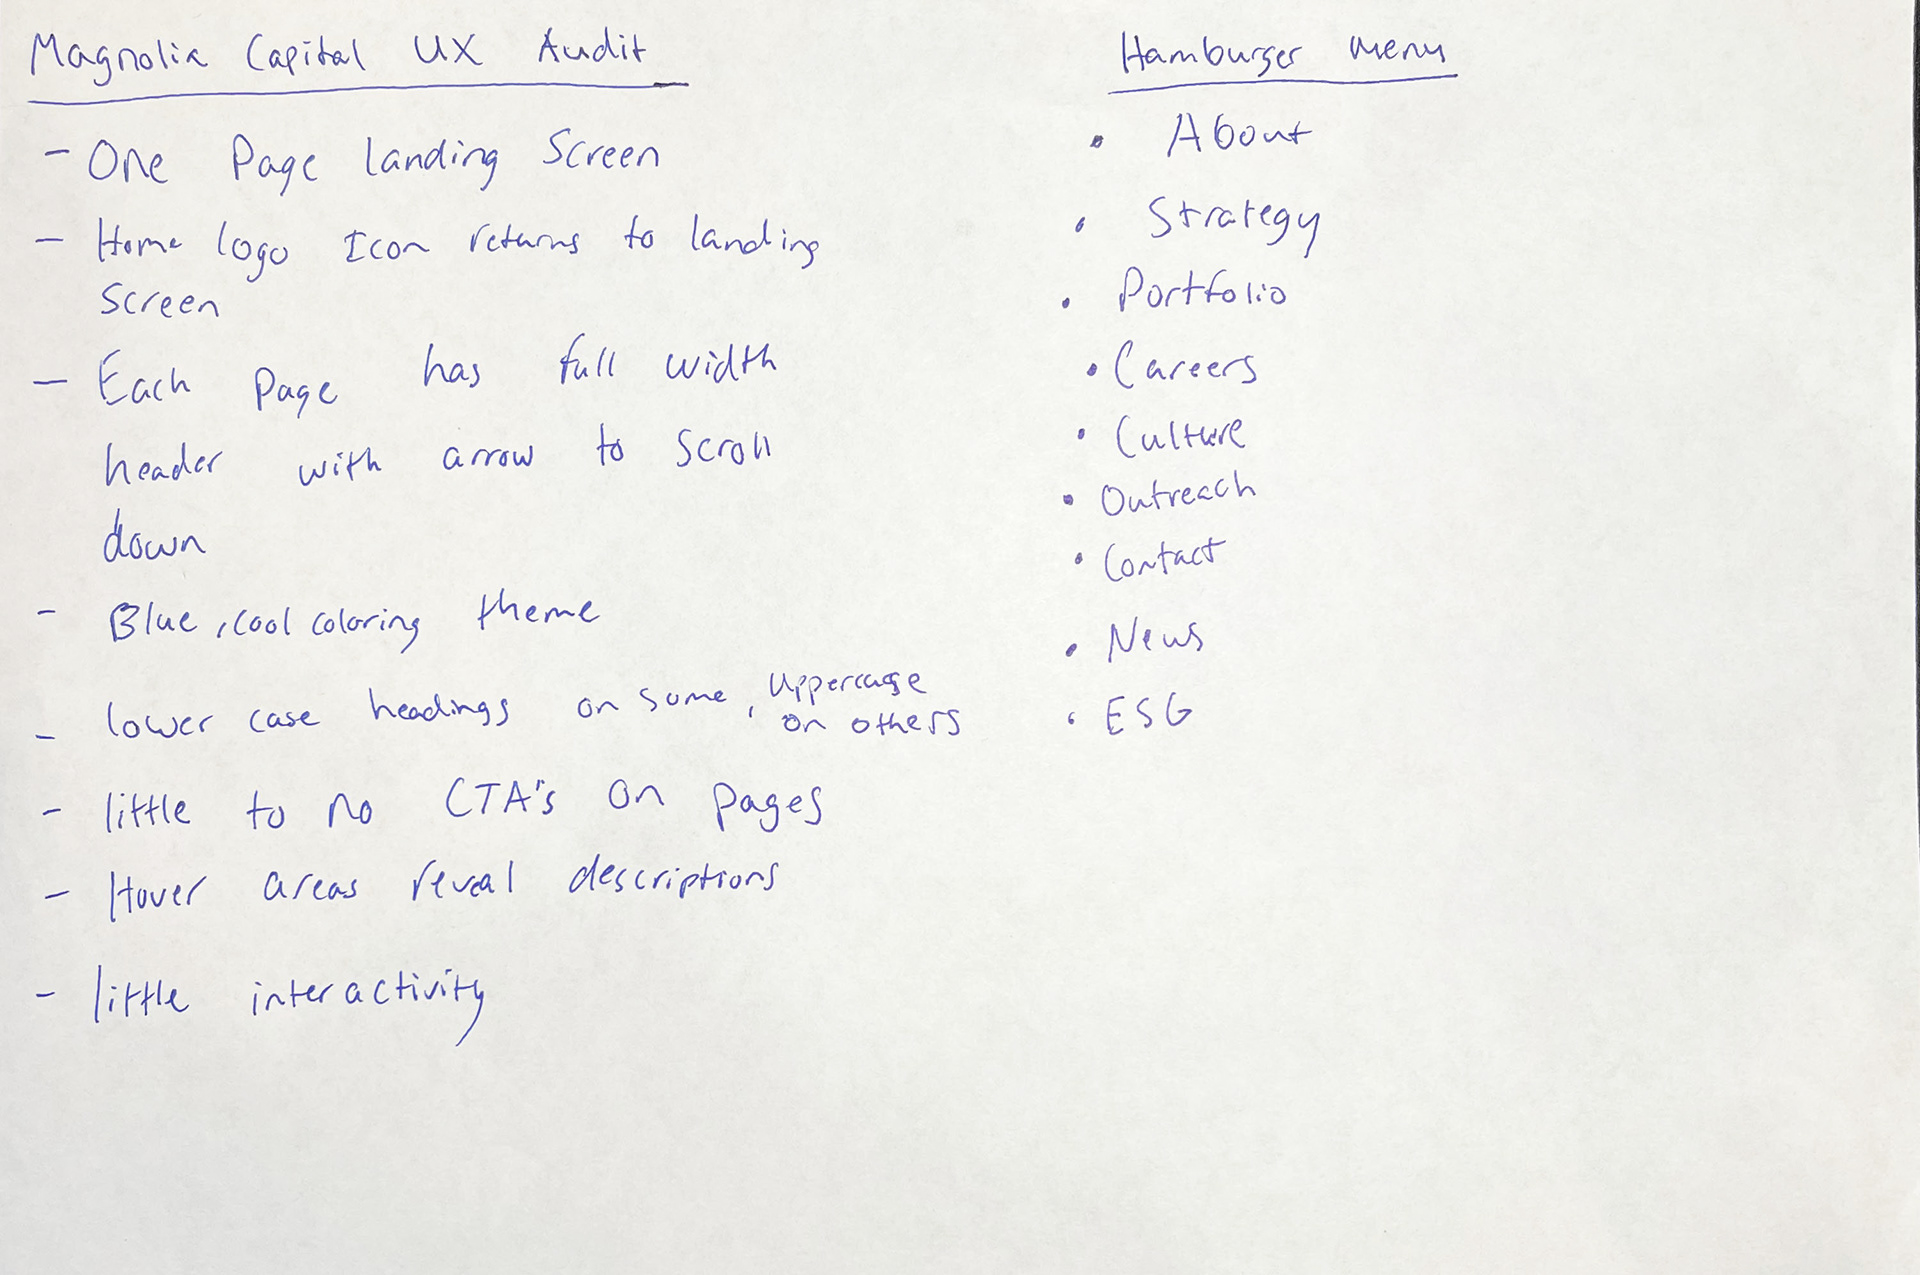 Magnolia Capital UX Audit
- One Page landing Screen
- Home logo Icon returns to landing
Screen
- Each Page has full width
header with arrow to scroll
down
- Blue, cool coloring theme
- lower case headings on some, Uppercase
on others
- little to no CTA's on pages
- Hover areas reveal descriptions
- little interactivity
Hamburger menu
• About
• Strategy
• Portfolio
• Careers
• Culture
• Outreach
• Contact
• News
• ESG